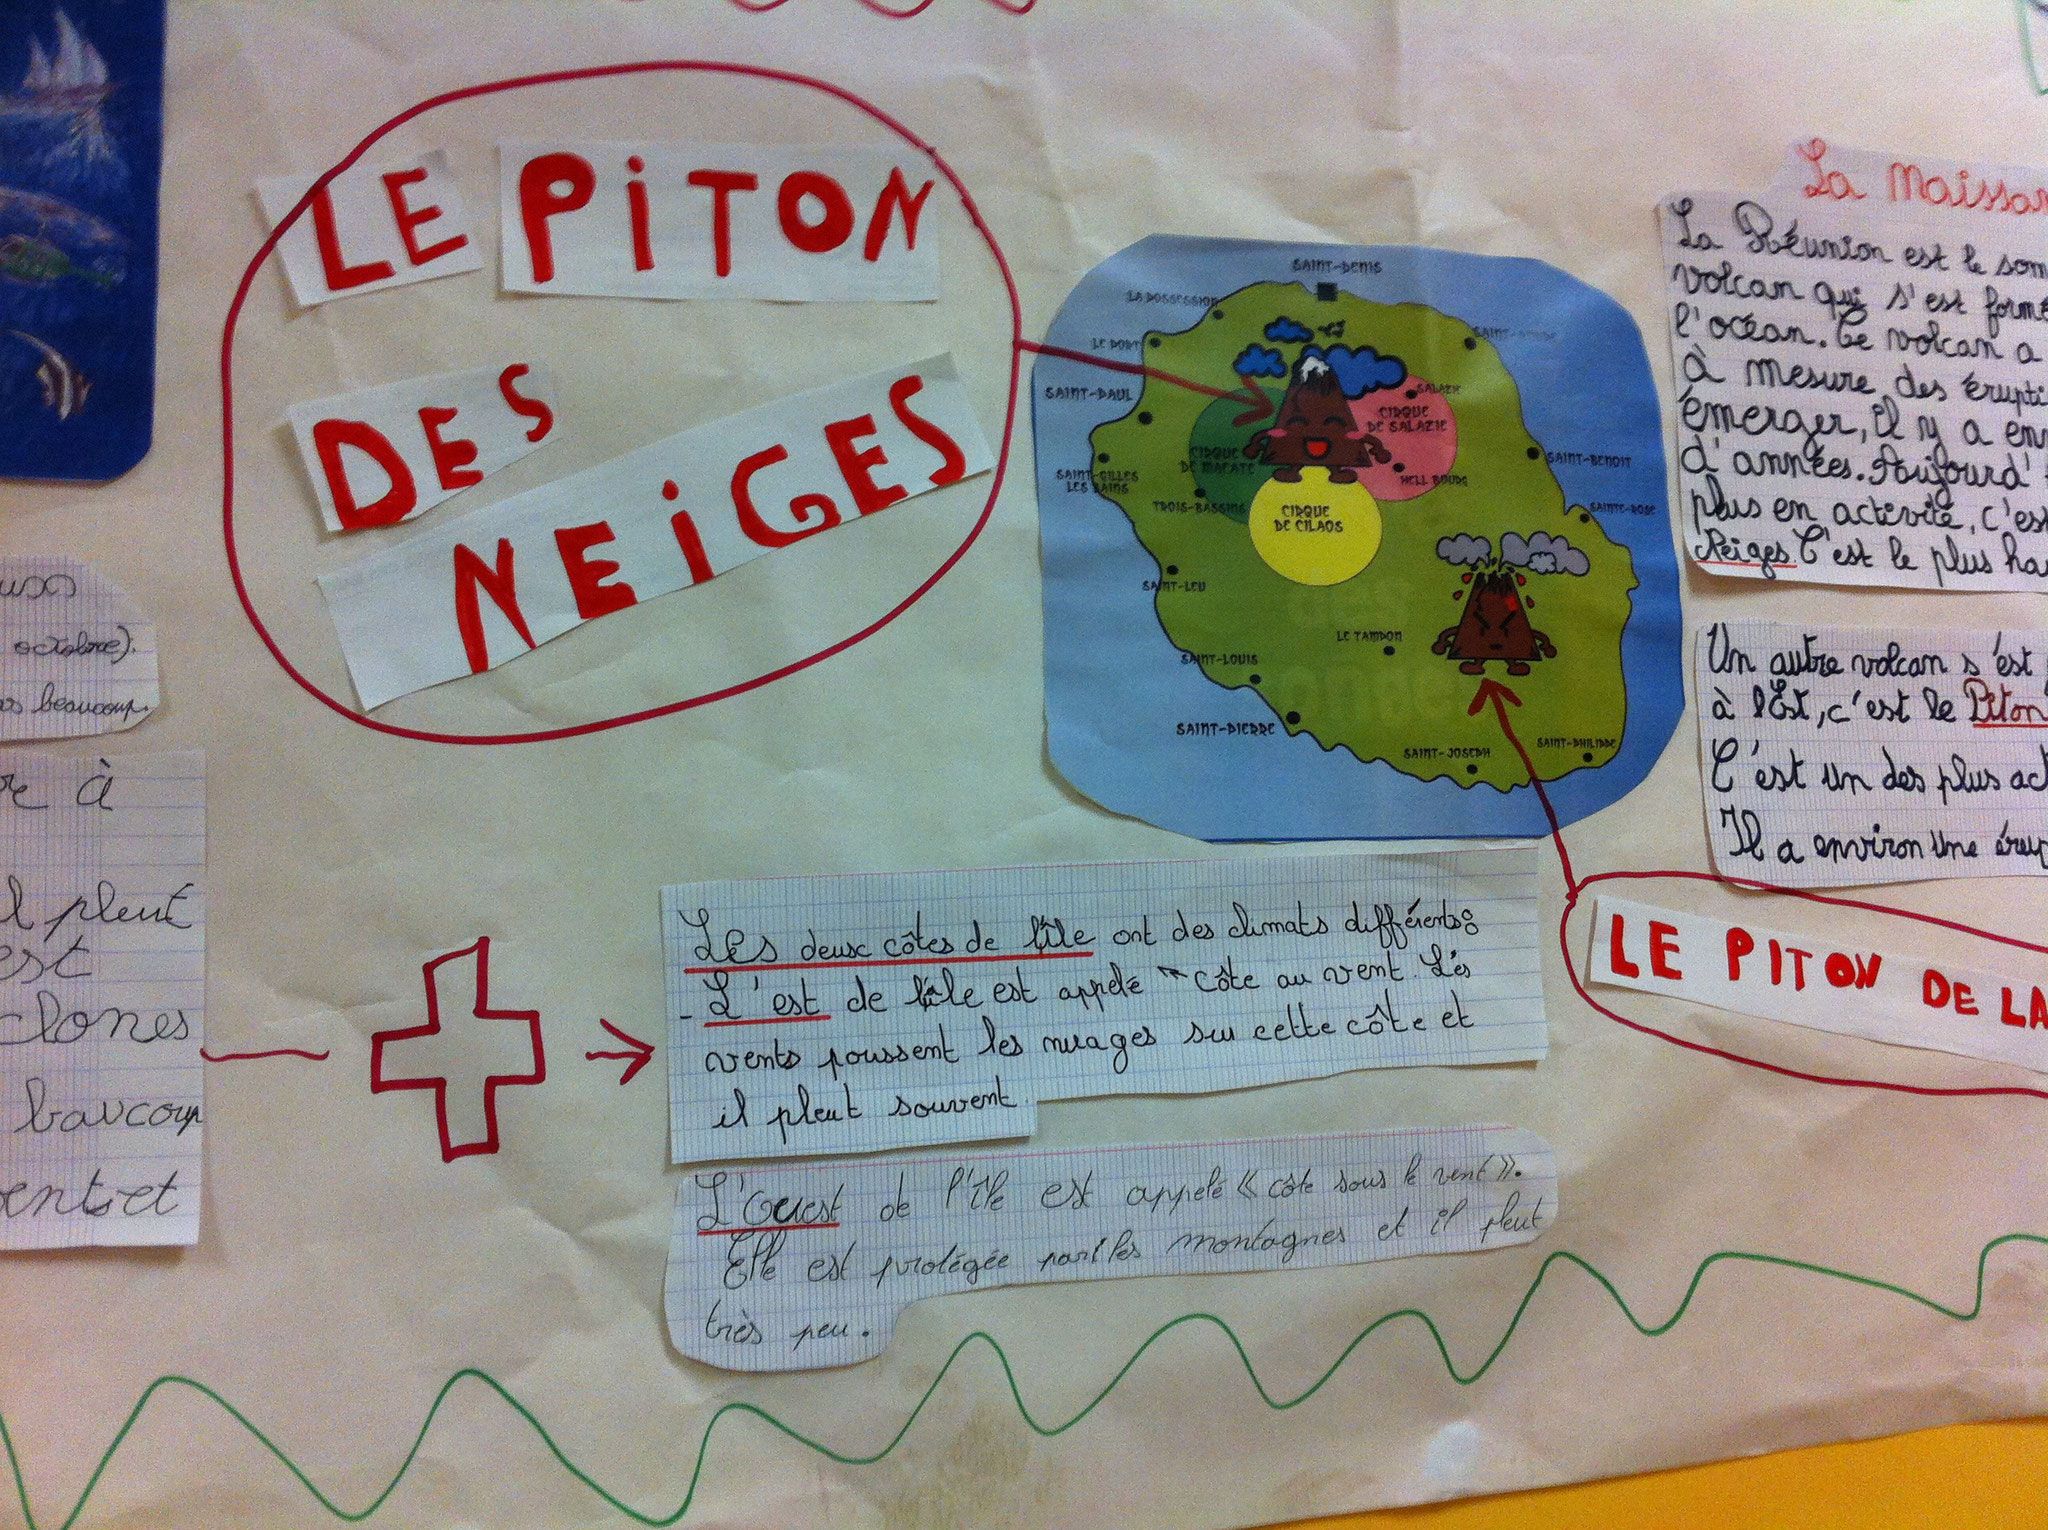 LE PITON
DES
NEIGES
SAINT-DENIS
LA POSSESSION
LE PORT
SAINT-PAUL
SALAZIE
CIRQUE
DE SALAZIE
CIRQUE
DE MAFATE
HELL BOURG
SAINT-GILLES
LES BAINS
TROIS-BASSINS
CIRQUE
DE CILAOS
SAINT-BENOIT
SAINTE-ROSE
SAINT-LEU
LE TAMPON
SAINT-LOUIS
SAINT-PIERRE
SAINT-JOSEPH
SAINT-PHILIPPE
La Maissan
La Réunion est le som
volcan qui s'est formé
l'océan. Ce volcan a
à mesure des érupti
émerger, il y a env
d'années. Aujourd'
plus en activité, c'es
Neiges C'est le plus ha
Un autre volcan s'est
à l'Est, c'est le Piton
C'est un des plus act
Il a environ une érup
LE PITON DE LA
octobre).
as beaucoup.
re à
l pleut
est
clones
baucoup
ent et
Les deux côtes de l'île ont des climats différents:
- L'est de l'île est appelé "côte au vent. Les
vents poussent les nuages sur cette côte et
il pleut souvent.
L'Ouest de l'île est appelé « côte sous le vent ».
Elle est protégée par les montagnes et il pleut
très peu.